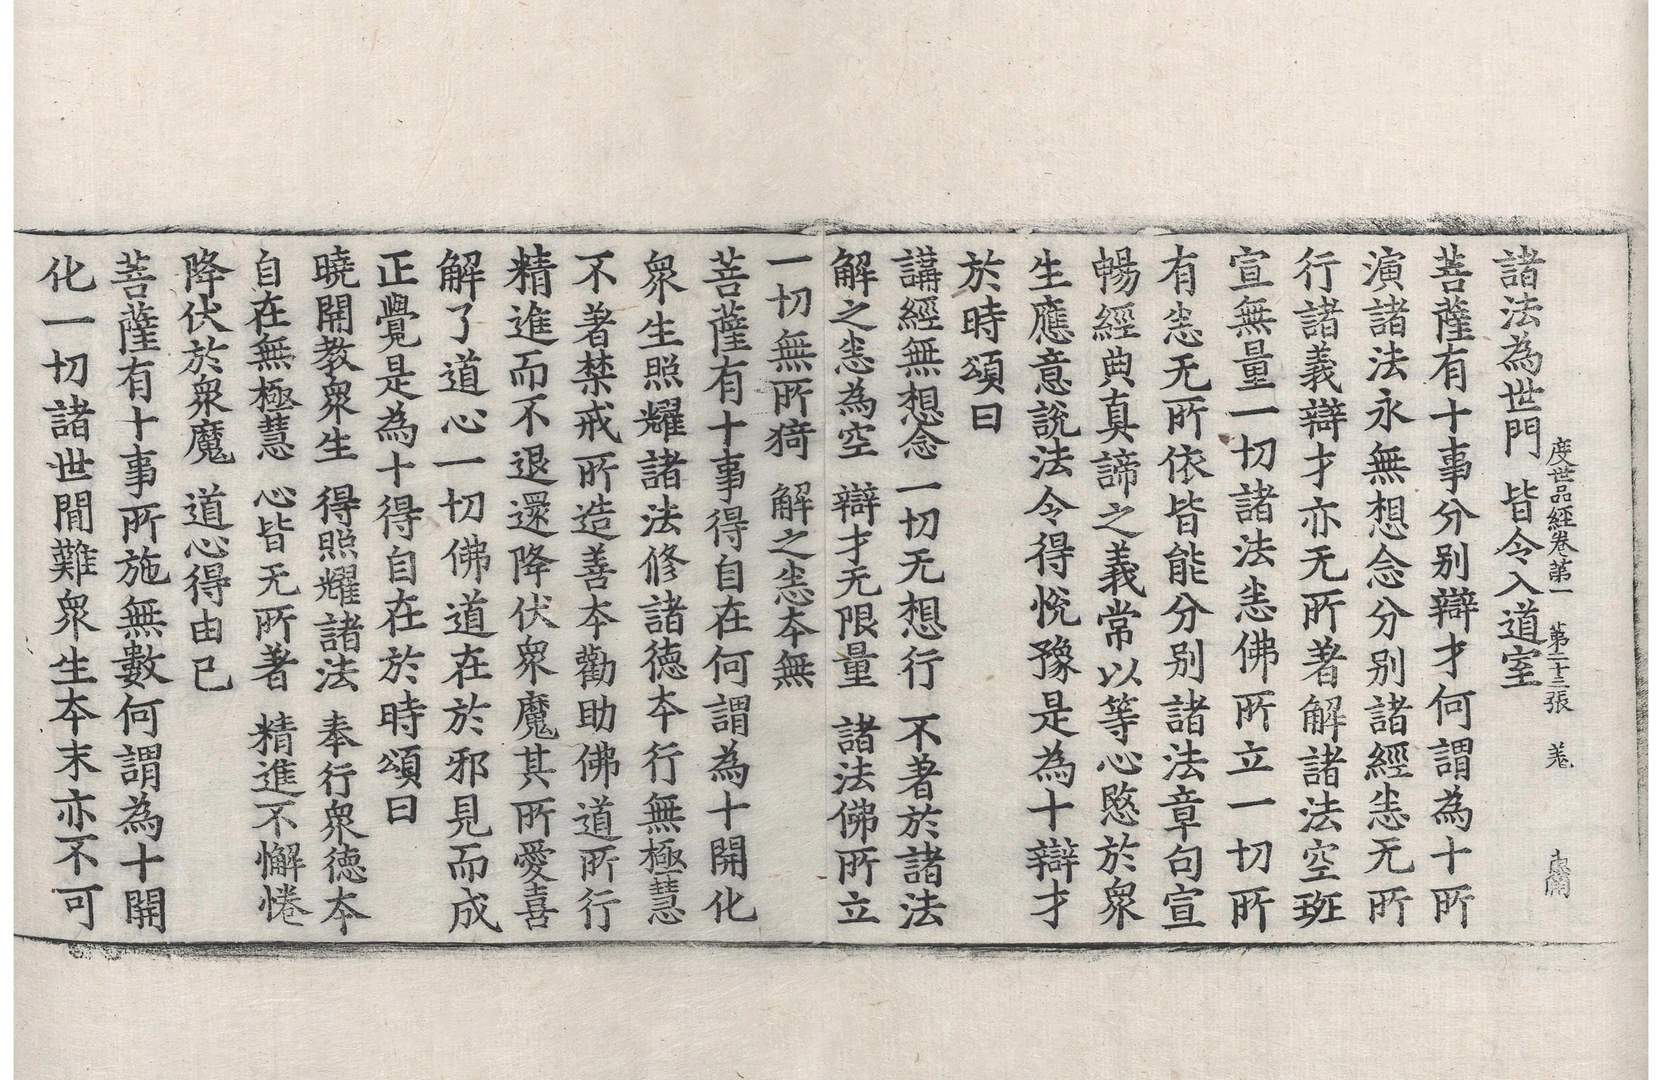 諸法為世門　皆令入道室
度世品經卷第一　第二十三張　羗
菩薩有十事分别辯才何謂為十所
演諸法永無想念分别諸經恚无所
行諸義辯才亦无所著解諸法空班
宣無量一切諸法恚佛所立一切所
有恚无所依皆能分别諸法章句宣
暢經典真諦之義常以等心愍於衆
生應意説法令得悅豫是為十辯才
於時頌曰
講經無想念　一切无想行　不著於諸法
解之恚為空　辯才无限量　諸法佛所立
一切無所猗　解之恚夲無
菩薩有十事得自在何謂為十開化
衆生照耀諸法修諸德夲行無極慧
不著禁戒所造善夲勸助佛道所行
精進而不退還降伏衆魔其所愛喜
解了道心一切佛道在於邪見而成
正覺是為十得自在於時頌曰
曉開教衆生　得照耀諸法　奉行衆德夲
自在無極慧　心皆无所著　精進不懈惓
降伏於衆魔　道心得由已
菩薩有十事所施無數何謂為十開
化一切諸世間難衆生夲末亦不可